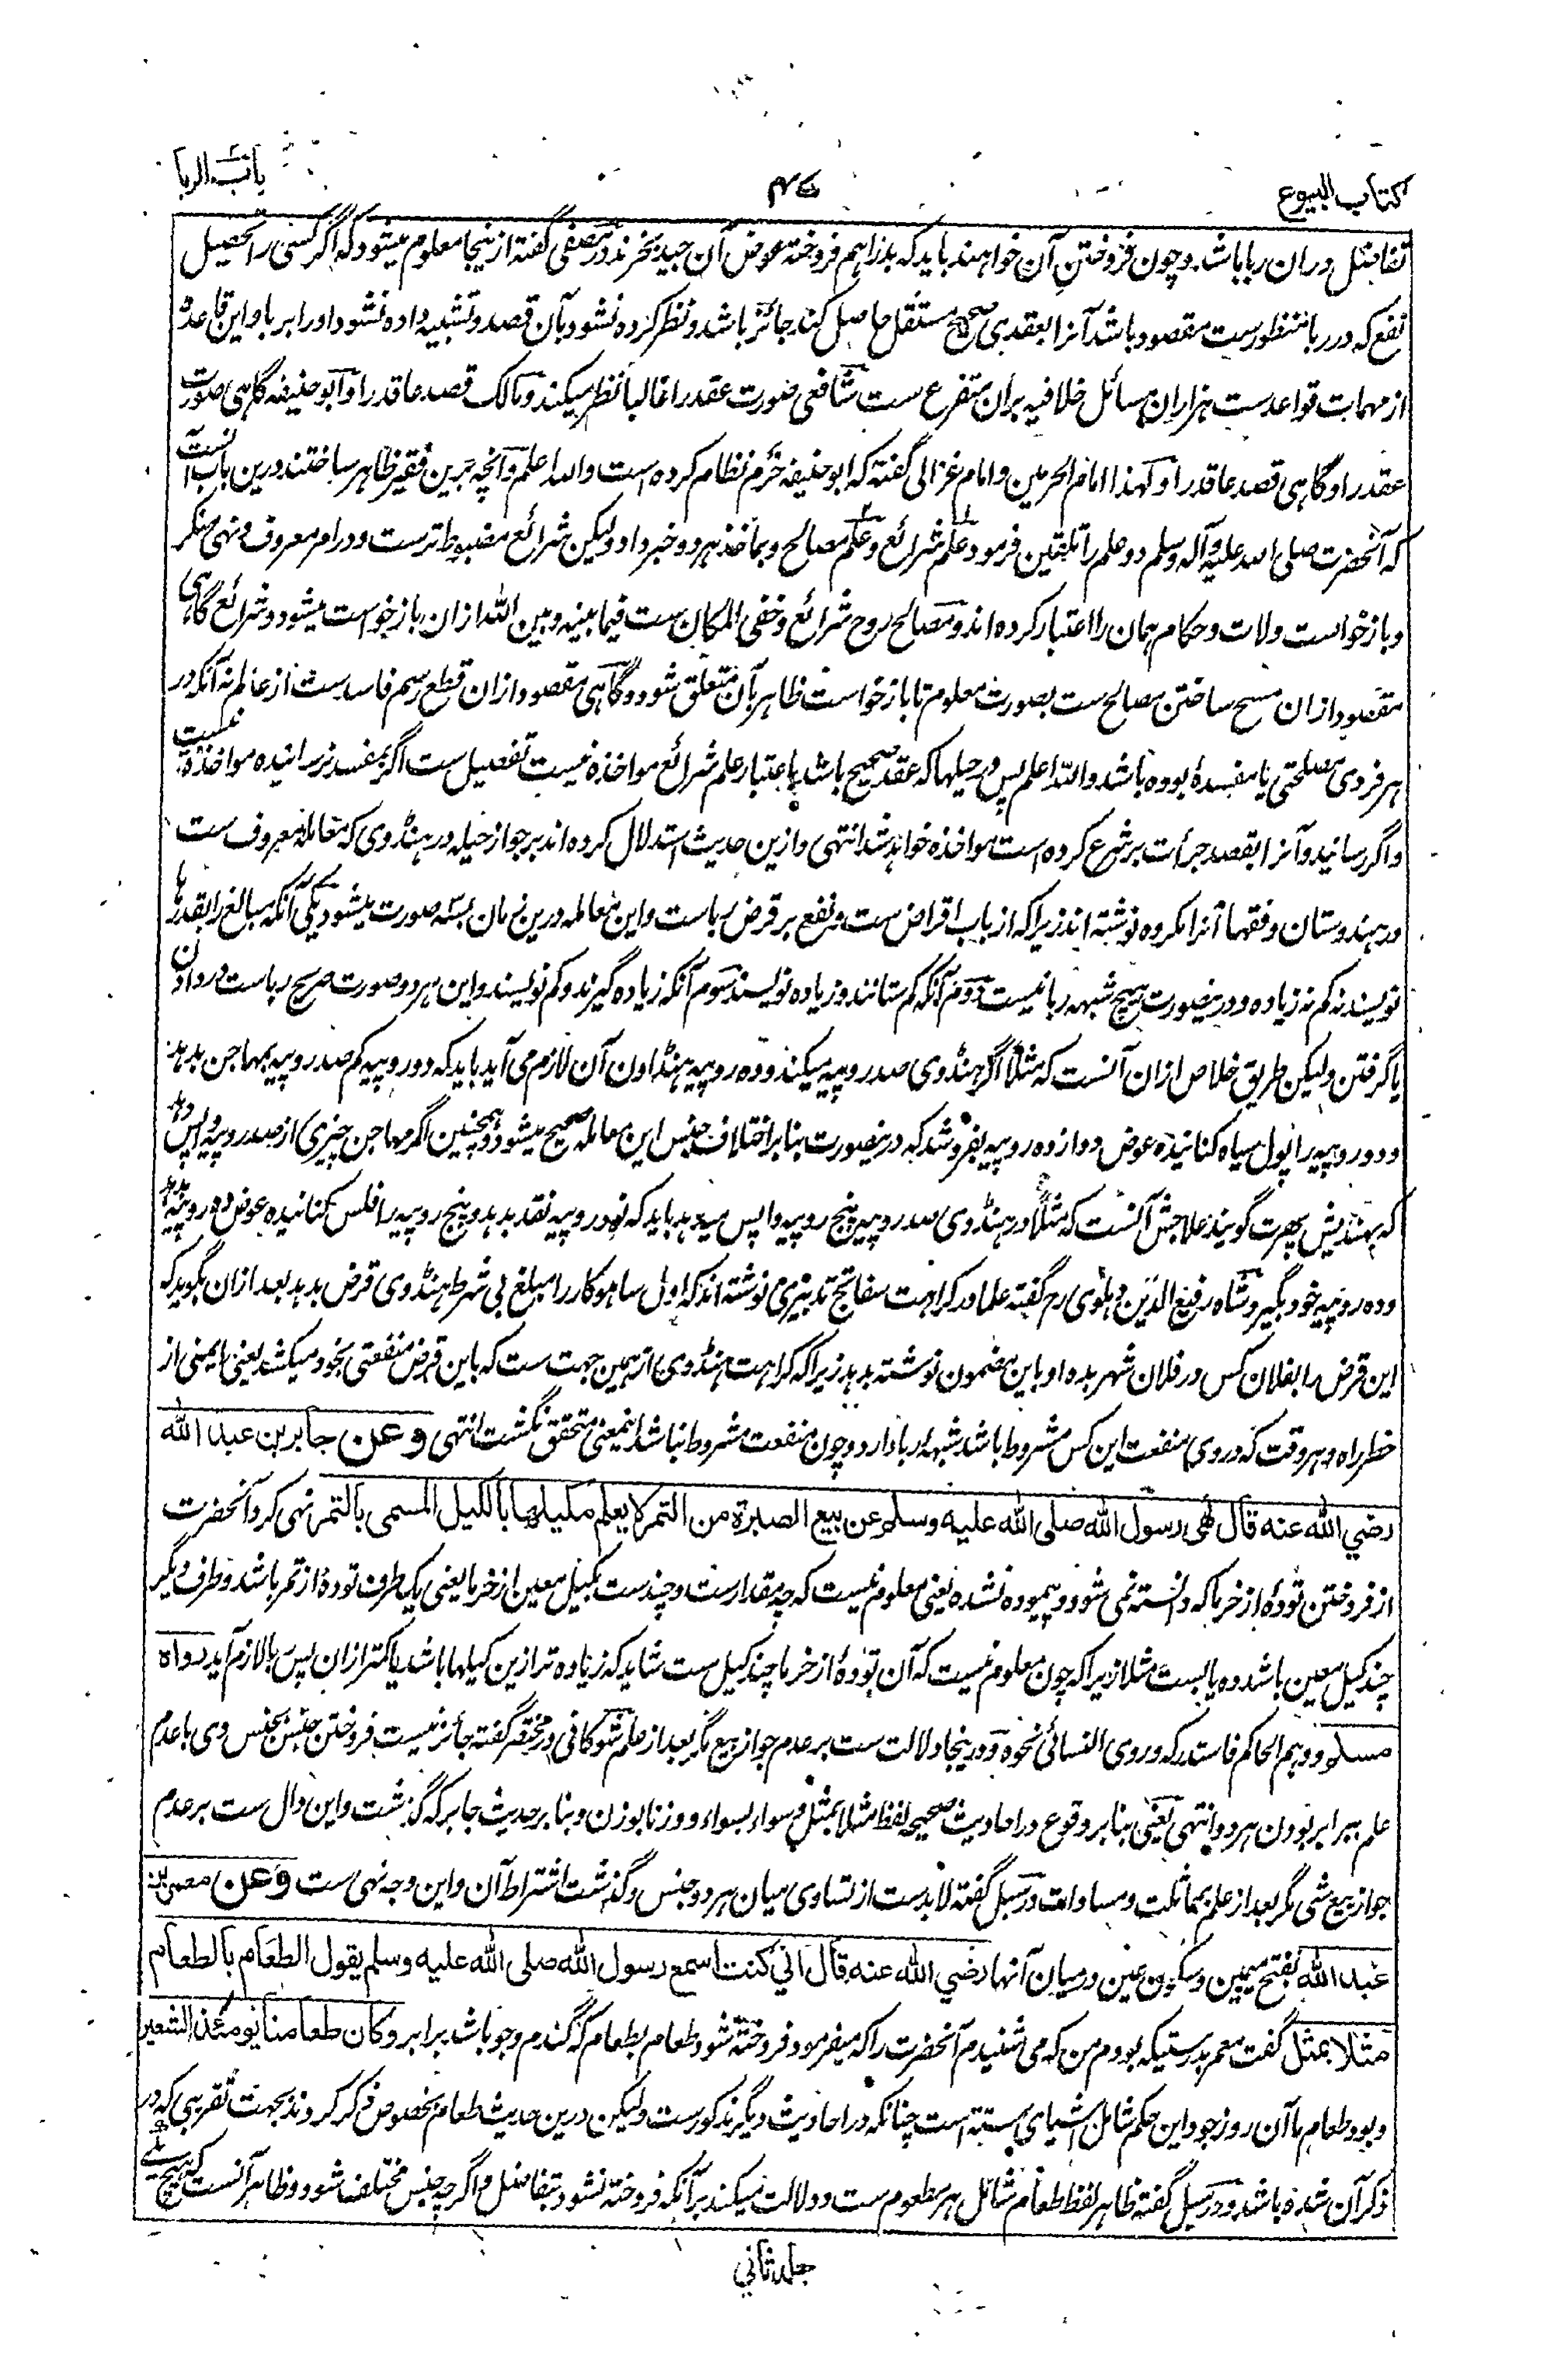 کتاب البیوع
۴۷
باب الربا
تفاضل دران ربا باشد وچون فروختن آن خواهند باید که بدراهم فروخته عوض آن جید بخرند در مصفی گفته ازینجا معلوم میشود که اگر کسی را تحصیل
نفع که در ربا منظورست مقصود باشد آنرا بعقدی صحیح مستقل حاصل کند جائز باشد ونظر کرده نشود بآن قصد وتشبیه داده نشود اورا بربا واین قاعده
از مهمات قواعدست هزاران مسائل خلافیه بران متفرع ست شافعی صورت عقد را غالبا نظر میکند ومالک قصد عاقد را وابو حنیفه گاهی صورت
عقد را وگاهی قصد عاقد را ولهذا امام الحرمین وامام غزالی گفته که ابو حنیفه خرم نظام کرده است والله اعلم وآنچه برین فقیر ظاهر ساختند درین باب آنست
که آنحضرت صلی الله علیه وآله وسلم دو علم را تلقین فرمود علم شرائع وعلم مصالح وبماخذ هر دو خبر داد ولیکن شرائع مضبوط ترست ودر امر معروف ونهی منکر
وبازخواست ولات وحکام همان را اعتبار کرده اند ومصالح روح شرائع وخفی المکان ست فیما بینه وبین الله ازان بازخواست میشود وشرائع گاهی
مقصود ازان مسح ساختن مصالح ست بصورت معلوم تا بازخواست ظاهر بآن متعلق شود وگاهی مقصود ازان قطع رسم فاسدست از عالم نه آنکه در
هر فردی مصلحتی یا مفسدهٔ بوده باشد والله اعلم پس در حیلها که عقد صحیح باشد باعتبار علم شرائع مواخذه نیست تفصیل ست اگر بمفسد نرسانیده مواخذه نیست
واگر رسانید وآنرا بقصد جرأت بر شرع کرده است مواخذه خواهد شد انتهی وازین حدیث استدلال کرده اند بر جواز حیله در هنڈوی که معامله معروف ست
در هندوستان وفقها آنرا مکروه نوشته اند زیرا که از باب اقراض ست ونفع بر قرض رباست واین معامله درین زمان بسه صورت میشود یکی آنکه مبالغ را بقدرها
نویسند نه کم نه زیاده ودر ینصورت هیچ شبهه ربا نیست دوم آنکه کم ستانند وزیاده نویسند سوم آنکه زیاده گیرند وکم نویسند واین هر دو صورت صریح رباست در دادن
یا گرفتن ولیکن طریق خلاص ازان آنست که مثلا اگر هنڈوی صد روپیه میکند وده روپیه هنڈاون آن لازم می آید باید که دو روپیه کم صد روپیه بمهاجن بدهد
ودو روپیه را پول سیاه کنانیده عوض دوازده روپیه بفروشد که درینصورت بنا بر اختلاف جنس این معامله صحیح میشود وهمچنین اگر مهاجن چیزی از صد روپیه واپس دهد
که بهندیش پهرت گویند علاجش آنست که مثلا در هنڈوی صد روپیه پنج روپیه واپس میدهد باید که نود روپیه نقد بدهد وپنج روپیه را فلس کنانیده عوض ده روپیه بدهد
وده روپیه خود بگیرد وشاه رفیع الدین دهلوی رح گفته علما در کراهت سفاتج تدبیری نوشته اند که اول ساهوکار را مبلغ بی شرط هنڈوی قرض بدهد بعد ازان بگوید که
این قرض را بفلان کس در فلان شهر بده او باین مضمون نوشته بدهد زیرا که کراهت هنڈوی از همین جهت ست که باین قرض منفعتی بخود میکشد یعنی ایمنی از
خطر راه وهر وقت که در وی منفعت این کس مشروط باشد شبهه ربا دارد وچون منفعت مشروط نباشد اینمعنی متحقق نگشت انتهی وعن جابر بن عبد الله
رضي الله عنه قال نهى رسول الله صلى الله عليه وسلم عن بيع الصبرة من التمر لا يعلم مكيلها بالكيل المسمى بالتمر نهی کرد آنحضرت
از فروختن تودهٔ از خرما که دانسته نمی شود وپیموده نشده یعنی معلوم نیست که چه مقدارست وچندست بکیل معین از خرما یعنی یک طرف تودهٔ از تمر باشد وطرف دیگر
چند کیل معین باشد ده یا بیست مثلا زیرا که چون معلوم نیست که آن تودهٔ از خرما چند کیل ست شاید که زیاده تر ازین کیلها باشد یا کمتر ازان پس ربا لازم آید رواه
مسلم ووهم الحاکم فاستدرکه وروی النسائی نحوه ودرینجا دلالت ست بر عدم جواز بیع مگر بعد از علم شوکانی در مختصر گفته جائز نیست فروختن جنس بجنس وی با عدم
علم ببرابر بودن هر دو انتهی یعنی بنا بر وقوع در احادیث صحیحه لفظ مثلا بمثل وسواء بسواء ووزنا بوزن وبنا بر حدیث جابر که گذشت واین دال ست بر عدم
جواز بیع شی مگر بعد از علم بمماثلت ومساوات ودر سبل گفته لابدست از تساوی میان هر دو جنس وگذشت اشتراط آن واین وجه نهی ست وعن معمر بن
عبد الله بفتح میمین وسکون عین درمیان آنها رضي الله عنه قال اني كنت اسمع رسول الله صلى الله عليه وسلم يقول الطعام بالطعام
مثلا بمثل گفت معمر بدرستیکه بودم من که می شنیدم آنحضرت را که میفرمود فروخته شود طعام بطعام که گندم وجو باشد برابر وكان طعامنا يومئذ الشعير
وبود طعام ما آن روز جو واین حکم شامل اشیای سته است چنانکه در احادیث دیگر مذکورست ولیکن درین حدیث طعام بخصوص ذکر کردند بجهت تقریبی که در
ذکر آن شده باشد ودر سبل گفته ظاهر لفظ طعام شامل هر مطعوم ست ودلالت میکند بر آنکه فروخته نشود بتفاضل واگرچه جنس مختلف شود وظاهر آنست که هیچ یکے
جلد ثاني